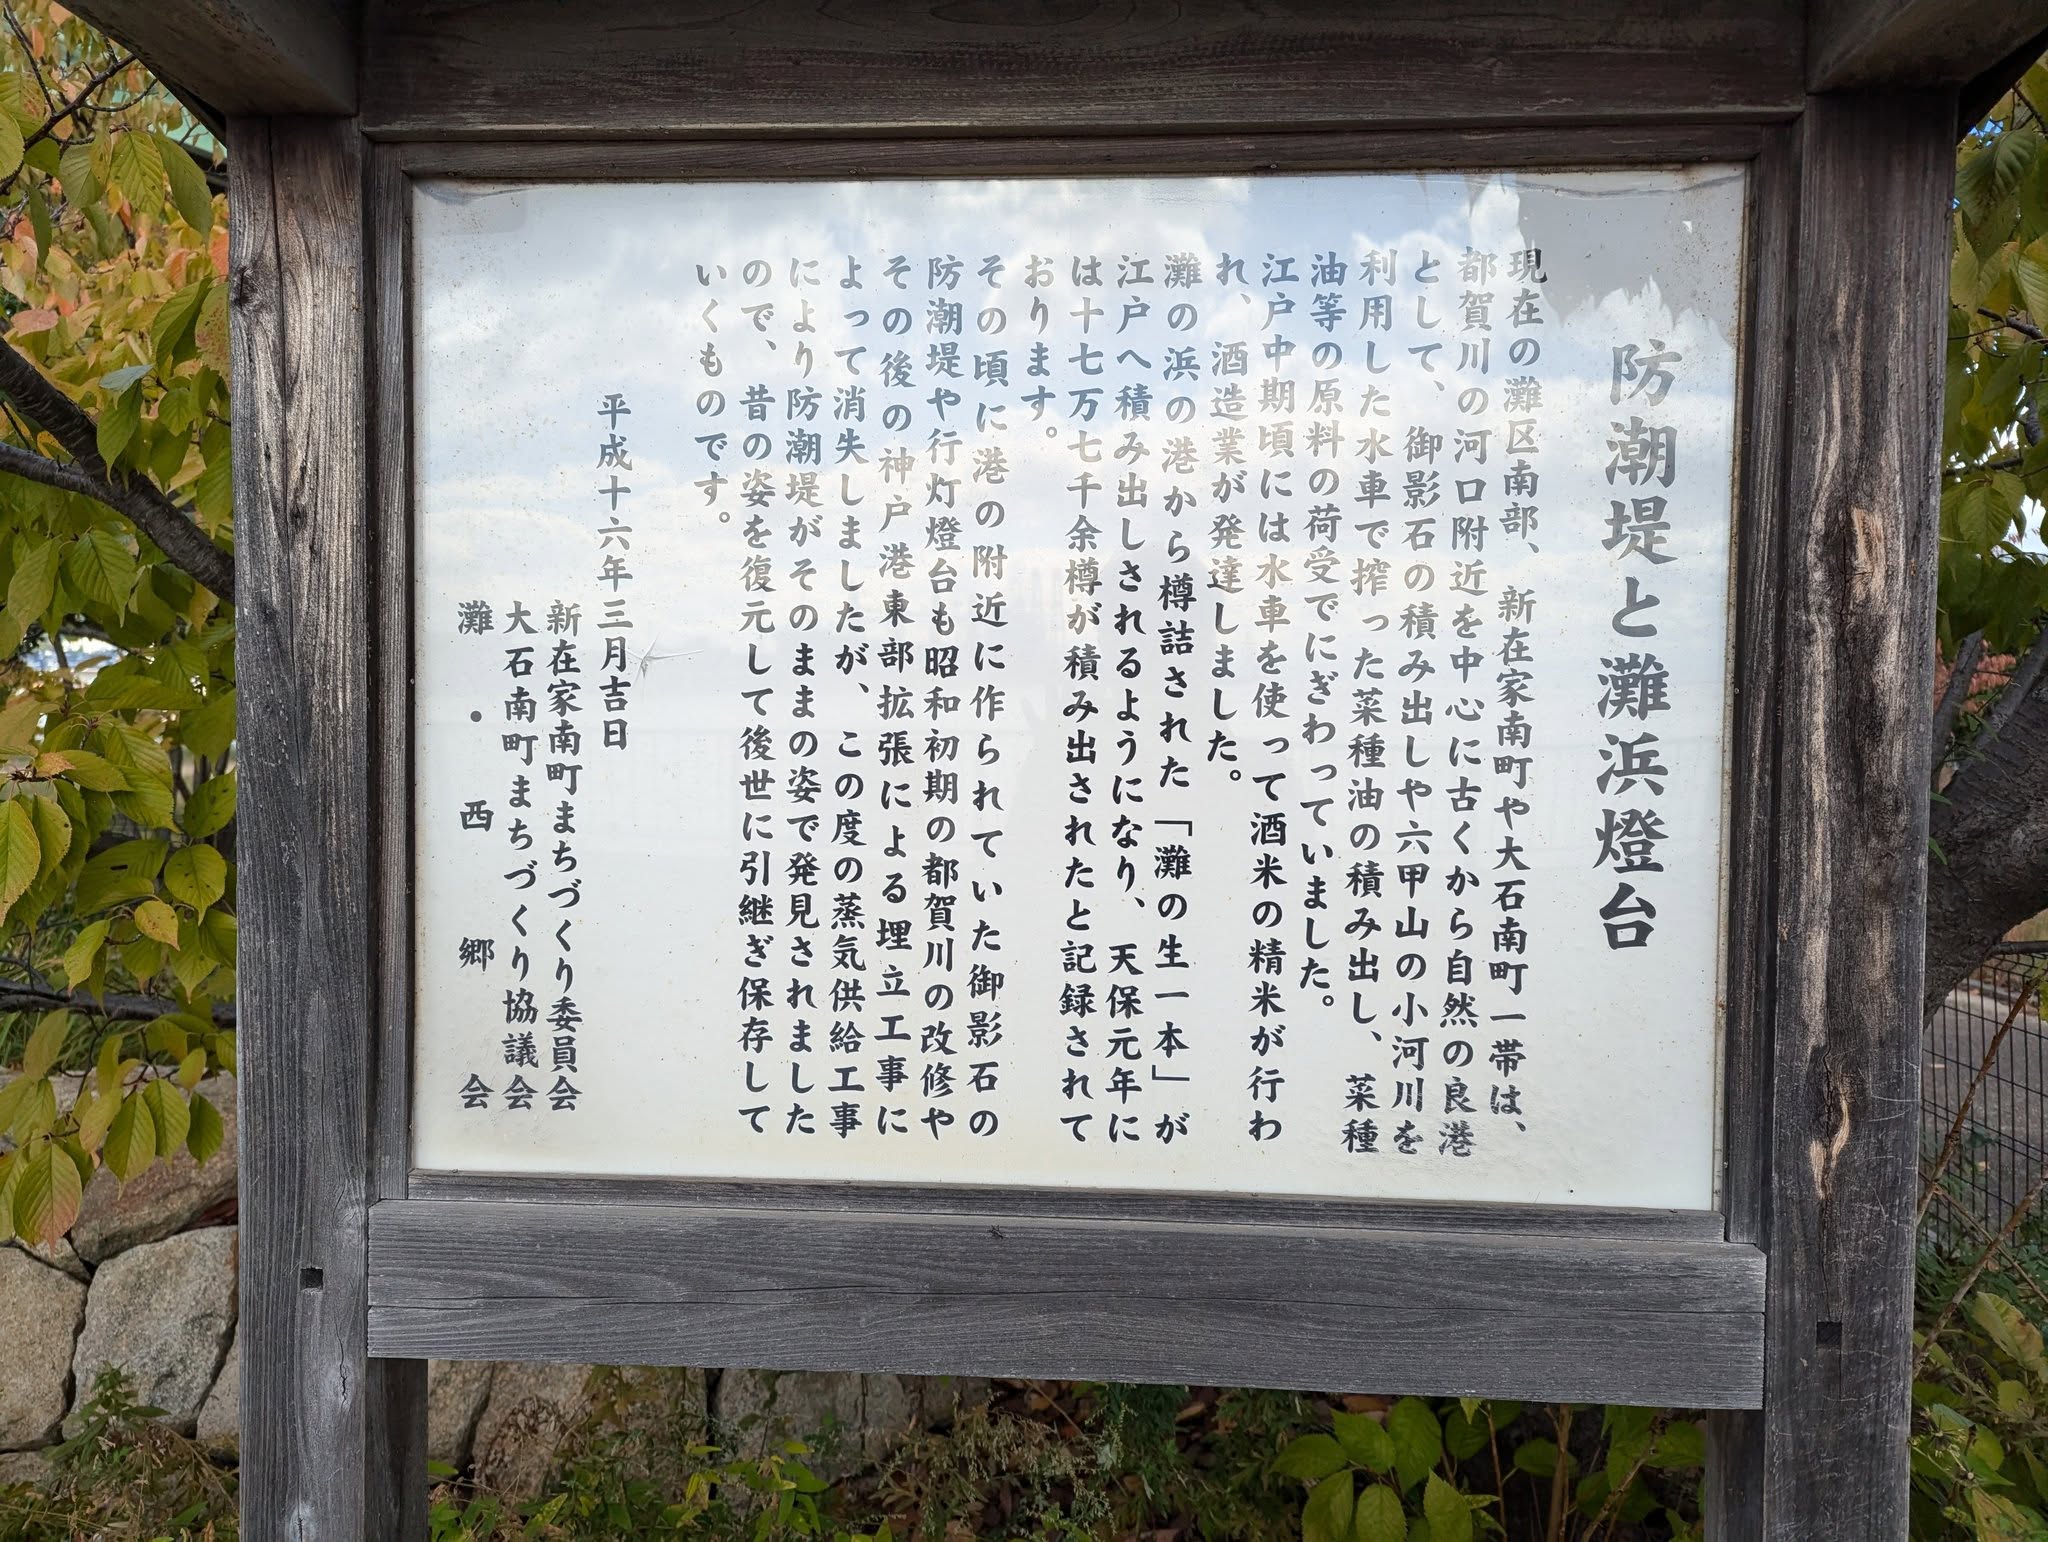 防潮堤と灘浜燈台
現在の灘区南部、新在家南町や大石南町一帯は、
都賀川の河口附近を中心に古くから自然の良港
として、御影石の積み出しや六甲山の小河川を
利用した水車で搾った菜種油の積み出し、菜種
油等の原料の荷受でにぎわっていました。
江戸中期頃には水車を使って酒米の精米が行わ
れ、酒造業が発達しました。
灘の浜の港から樽詰された「灘の生一本」が
江戸へ積み出しされるようになり、天保元年に
は十七万七千余樽が積み出されたと記録されて
おります。
その頃に港の附近に作られていた御影石の
防潮堤や行灯燈台も昭和初期の都賀川の改修や
その後の神戸港東部拡張による埋立工事に
よって消失しましたが、この度の蒸気供給工事
により防潮堤がそのままの姿で発見されました
ので、昔の姿を復元して後世に引継ぎ保存して
いくものです。
平成十六年三月吉日
新在家南町まちづくり委員会
大石南町まちづくり協議会
灘・西郷会